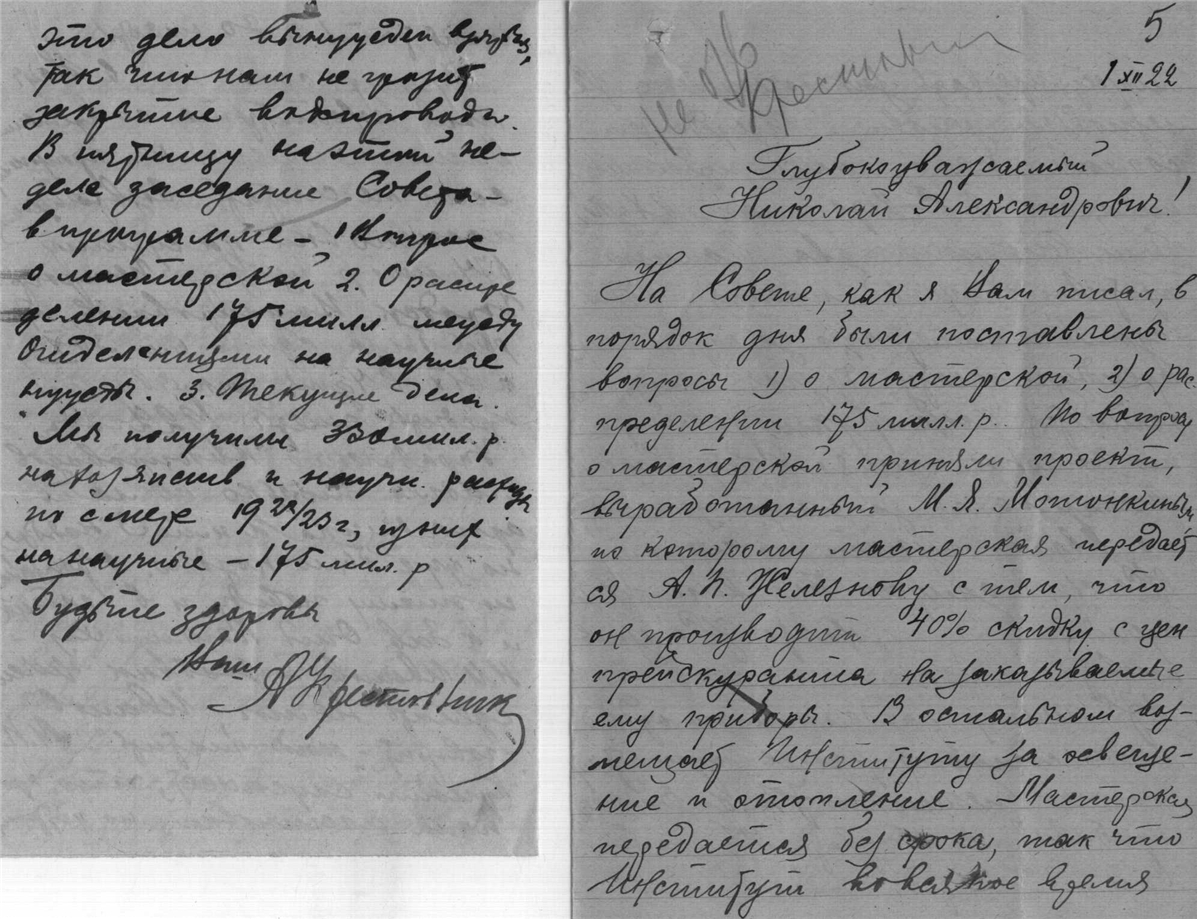 это дело вынужден
так что нам не грозит
закрытие водопровода.
В пятницу на этой не-
деле заседание Совета –
в программе – 1 Вопрос
о мастерской 2. О распре
делении 175 милл. между
Отделениями на научные
нужды. 3. Текущие дела.
Мы получили 350 мил. р.
на хозяйств и научн. расходы
по смете 1922/23 г., из них
на научные – 175 мил. р
Будьте здоровы
Ваш
АКрестовник
5
не Крестовник
1 XII 22
Глубокоуважаемый
Николай Александрович!
На Совете, как я Вам писал, в
порядок дня были поставлены
вопросы 1) о мастерской, 2) о рас-
пределении 175 милл. р. По вопросу
о мастерской приняли проект,
выработанный М. Я.
по которому мастерская передает
ся А. П. Железнову с тем, что
он производит 40% скидку с цен
прейскуранта на заказываемые
ему приборы. В остальном воз-
мещает Институту за освеще-
ние и отопление. Мастерская
передается без срока, так что
Институт во всякое время